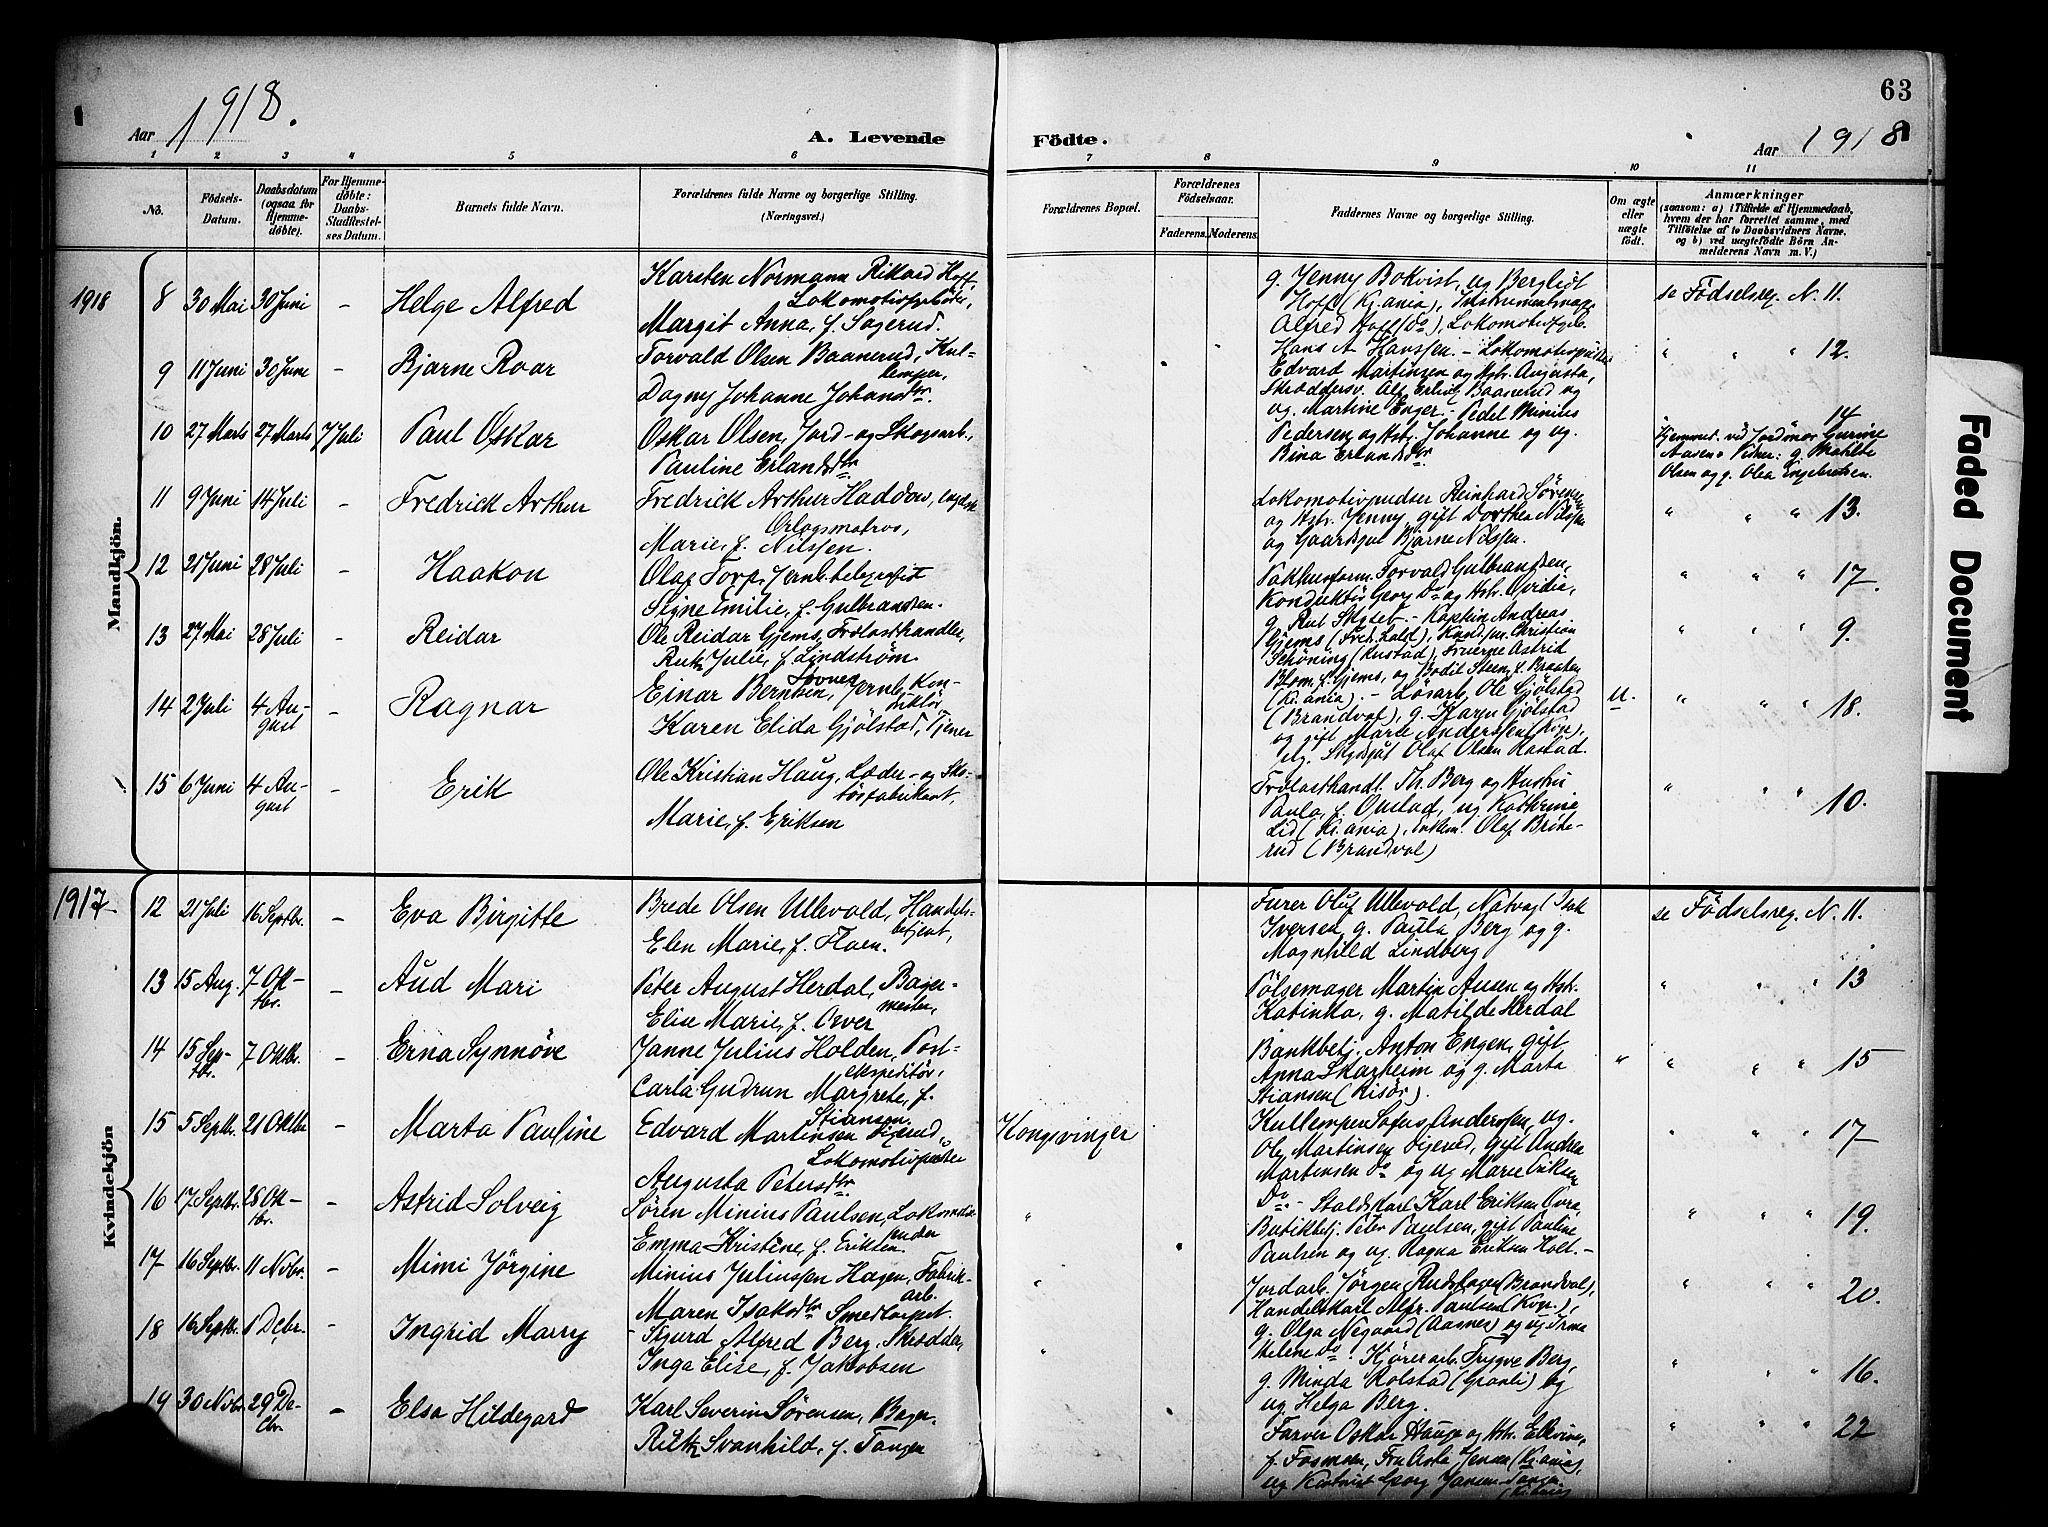 63
Aar 1918.
A. Levende
Födte.
Aar 1918
1 2 3 4 5 6 7 8 9 10 11
No.
Födsels-
Datum.
Daabsdatum
(ogsaa for
Hjemme-
døbte).
For Hjemme-
døbte:
Daabs-
Stadfæstel-
ses Datum.
Barnets fulde Navn.
Forældrenes fulde Navne og borgerlige Stilling.
(Næringsvei.)
Forældrenes Bopæl.
Forældrenes
Födselsaar.
Faderens. Moderens.
Faddernes Navne og borgerlige Stilling.
Om ægte
eller
uægte
født.
Anmærkninger
(saasom: a) i Tilfælde af Hjemmedaab,
hvem der har forrettet samme, med
Tilföielse af to Daabsvidners Navne,
og b) ved uægtefödte Börn An-
melderens Navn m. V.)
Mandkjön.
1918
8 30 Mai 30 Juni - Helge Alfred
Karsten Normann Rikard Hoff,
Lokomotivfyrböter,
Margit Anna, f. Sagerud.
g. Jenny Bokvist, ug Bergliot
Hoff (Kr.ania), Instrumentmag.
Alfred Hoff (Do), Lokomotivfyrb.
Hans A Hanssen. -
se Födselsreg. N. 11.
9 11 Juni 30 Juni - Bjarne Roar
Torvald Olsen Baanerud, Kul-
lemper,
Dagny Johanne Johansdtr.
Lokomotivpudser
Edvard Martinsen og Hstr. Augusta,
Skræddersv. Alf Erling Baanerud og
ug. Martine Enger. -
" " " 12.
10 27 Marts 27 Marts 7 Juli Paul Oskar
Oskar Olsen, Jord- og Skogsarb.,
Pauline Erlandsdtr.
Pedel Minius
Pedersen og Hstr. Johanne og ug.
Bina Erlandsdtr.
14
Hjemmed. ved Jordmor Gurine
Aasen. Vidner: g. Mathilde
Olsen og g. Olea Engebretsen.
11 9 Juni 14 Juli - Fredrick Arthur
Fredrick Arthur Haddow, engelsk
Orlogsmatros,
Marie, f. Nilssen.
Lokomotivpudser Reinhard Sörensen
og Hstr. Jenny, gift Dorthea Nilssen
og Gaardsgut Bjarne Nilssen.
" " " 13.
12 21 Juni 28 Juli - Haakon
Olaf Torp, Jernb.telegrafist
Signe Emilie, f. Gulbrandsen.
Pakhusform. Torvald Gulbrandsen,
Konduktör Georg Do og Hstr. Ovidia,
g. Rut Skytet. -
" " " 17.
13 27 Mai 28 Juli - Reidar
Ole Reidar Gjems, Trælasthandler,
Ruth Julie, f. Lindström.
Kaptein Andreas
Gjems (Fred.hald), Christian
Schöning (Rustad), Fruerne Astrid
Blom f. Gjems, og Bodil Steen f. Braaten
(Kr.ania). -
" " " 9.
14 2 Juli 4 Au-
gust - Ragnar
Einar Berntsen, Jernb. Kon-
duktör
Karen Elida Gjölstad, Tjener
Lösarb. Ole Gjölstad
(Brandval), g. Karen Gjölstad
og gift Marie Anderssen (Kgv.),
Skydsgut Olaf Olsen Rastad.
u.
" " " 18.
15 6 Juni 4 Au-
gust - Erik
Ole Kristian Haug, Læder- og Sko-
töifabrikant,
Marie, f. Eriksen
Trælasthandl. Th. Berg og Hustru
Paula, f. Opstad, ug Kathrine
Lid (Kr.ania), Enkem. Olaf Bröte-
rud (Brandval)
" " " 10.
Kvindekjön
1917
12 21 Juli 16 Septbr. - Eva Birgitte
Brede Olsen Ullevold, Handels-
betjent,
Elen Marie, f. Floen.
Furer Oluf Ullevold, Natvagt Isak
Iversen, g. Paula Berg og g.
Magnhild Lindberg
se Födselsreg. N. 11.
13 15 Aug. 7 Ok-
tbr. - Aud Mari
Peter August Herdal, Bager-
mester,
Elise Marie, f. Orver
Pölsemager Martin Ausen og Hstr.
Katinka, g. Matilde Herdal
" " " 13
14 15 Sep-
tbr. 7 Oktbr. - Erna Synnöve
Janne Julius Holden, Post-
ekspeditör,
Carla Gudrun Margrete, f.
Stiansen
Bankbetj. Anton Engen, gift
Anna Skarheim og g. Marta
Stiansen (Risör).
" " " " 15
15 5 Septbr. 21 Oktbr - Marta Pauline
Edvard Martinsen Digerud,
Lokomotivpudser
Augusta Petersdtr.
Kongsvinger
Kullemper Sofus Anderssen, ug.
Ole Martinsen Digerud, gift Andrea
Martinsen Do og ug Marie Eriksen
Do. -
" " " 17
16 17 Septbr. 28 Ok-
tbr. - Astrid Solveig
Sören Minius Paulsen, Lokomotiv-
pudser
Emma Kristine, f. Eriksen.
"
Staldskarl Karl Eriksen Ovra,
Butikbetj. Peter Paulsen, gift Pauline
Paulsen og ug. Ragna Eriksen Holt. -
" " " 19.
17 16 Septbr. 11 Novbr. - Mimi Jörgine
Minius Juliussen Hagen, Fabrik-
arb.
Maren Isaksdtr. Smedtorpet.
"
Jordarb. Jörgen Rudshagen (Brandval),
Handelskarl Alfr. Paulsen (Kgv.),
g. Olga Negaard (Aasnes) og ug Irma
Helene Do.
" " " 20.
18 16 Septbr. 1 Debr. - Ingrid Marry
Sigurd Alfred Berg, Skrædder,
Inga Elise, f. Jakobsen
"
Kjörerarb. Trygve Berg,
g. Minda Rolstad (Granli) og
ug. Helga Berg.
" " " 16.
19 30 Novbr 29 De-
cbr. - Elsa Hildegard
Karl Severin Sörensen, Bager.
Ruth Svanhild, f. Tangen
Farver Oskar Hauge og Hstr. Ellevine,
f. Fosmoen, Fru Asta Jensen (Kr.ania),
ug Georg Jansen Tangen
" " " 22
Faded Document